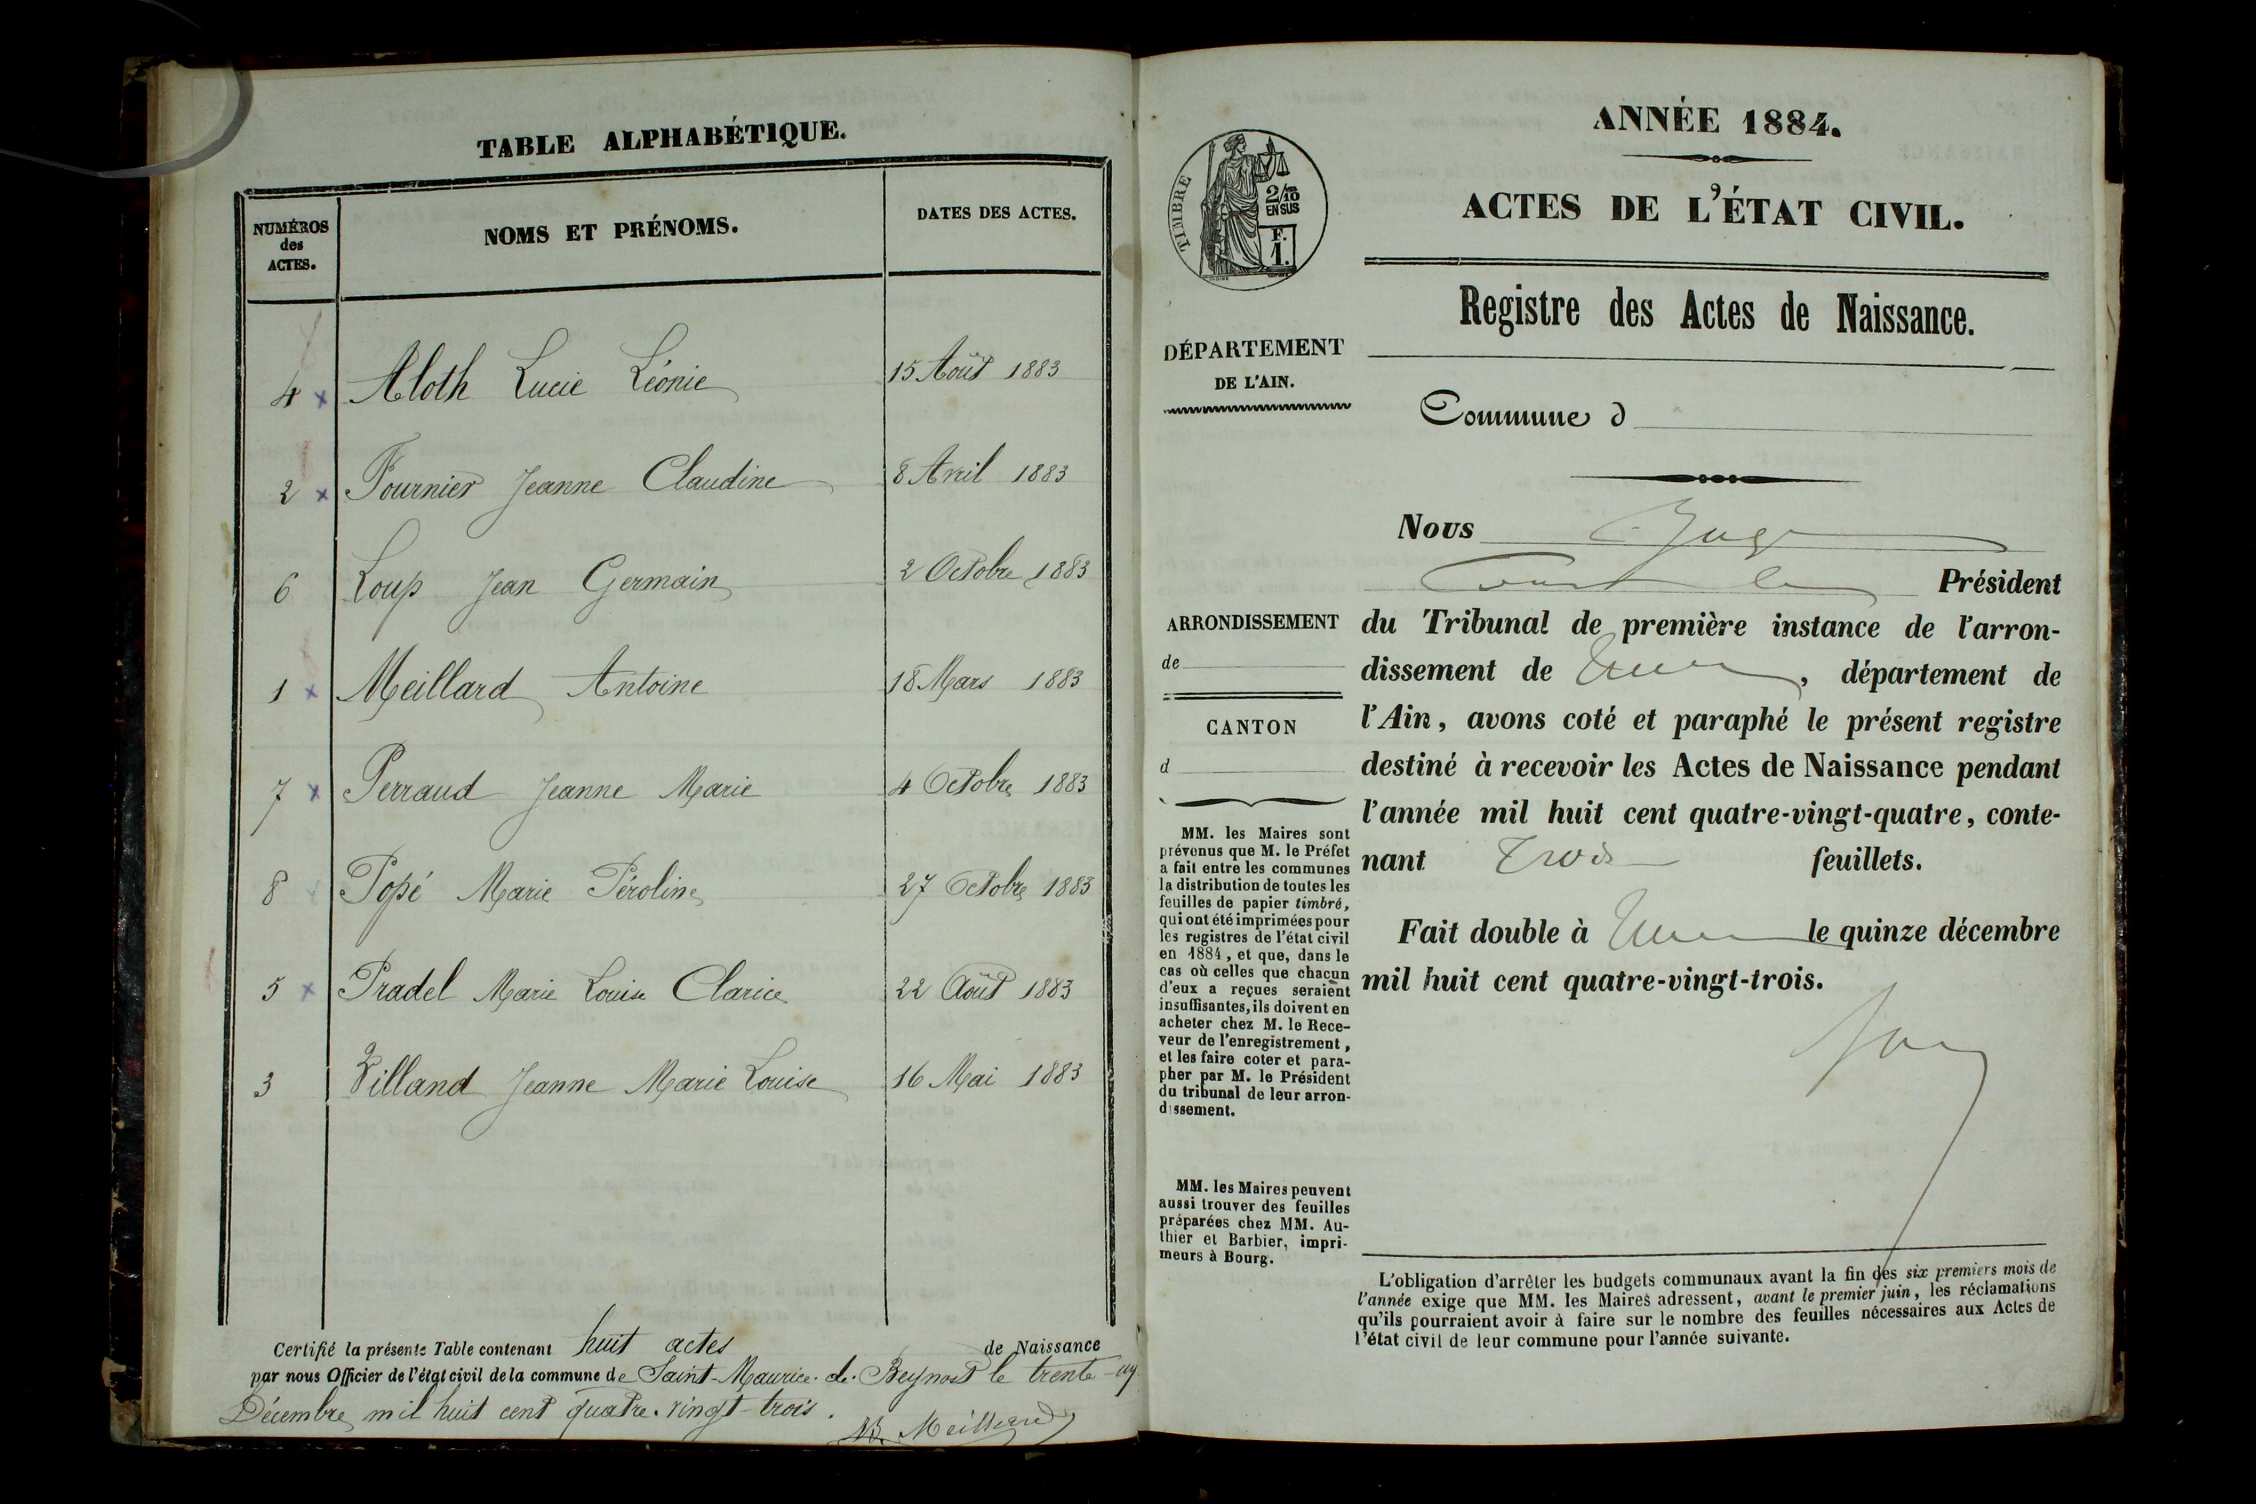 TABLE ALPHABÉTIQUE.
NUMÉROS
des
ACTES.
NOMS ET PRÉNOMS.
DATES DES ACTES.
4 x Aloth Lucie Léonie 15 Août 1883
2 x Fournier Jeanne Claudine 8 Avril 1883
6 Loup Jean Germain 2 Octobre 1883
1 x Meillard Antoine 18 Mars 1883
7 x Perraud Jeanne Marie 4 Octobre 1883
8 Popé Marie Péroline 27 Octobre 1883
5 x Pradel Marie Louise Clarice 22 Août 1883
3 Villand Jeanne Marie Louise 16 Mai 1883
Certifié la présente Table contenant huit actes de Naissance
par nous Officier de l'état civil de la commune de Saint-Maurice-de-Beynost le trente-un
Décembre mil huit cent quatre-vingt-trois.
Meillard
ANNÉE 1884.
TIMBRE
2/10
EN SUS
F.
1.
ACTES DE L'ÉTAT CIVIL.
Registre des Actes de Naissance.
DÉPARTEMENT
DE L'AIN.
Commune d
Nous Juge
Président
ARRONDISSEMENT
de
CANTON
d
du Tribunal de première instance de l'arron-
dissement de , département de
l'Ain, avons coté et paraphé le présent registre
destiné à recevoir les Actes de Naissance pendant
l'année mil huit cent quatre-vingt-quatre, conte-
nant trois feuillets.
Fait double à le quinze décembre
mil huit cent quatre-vingt-trois.
MM. les Maires sont
prévenus que M. le Préfet
a fait entre les communes
la distribution de toutes les
feuilles de papier timbré,
qui ont été imprimées pour
les registres de l'état civil
en 1884, et que, dans le
cas où celles que chacun
d'eux a reçues seraient
insuffisantes, ils doivent en
acheter chez M. le Rece-
veur de l'enregistrement,
et les faire coter et para-
pher par M. le Président
du tribunal de leur arron-
dissement.
MM. les Maires peuvent
aussi trouver des feuilles
préparées chez MM. Au-
thier et Barbier, impri-
meurs à Bourg.
L'obligation d'arrêter les budgets communaux avant la fin des six premiers mois de
l'année exige que MM. les Maires adressent, avant le premier juin, les réclamations
qu'ils pourraient avoir à faire sur le nombre des feuilles nécessaires aux Actes de
l'état civil de leur commune pour l'année suivante.